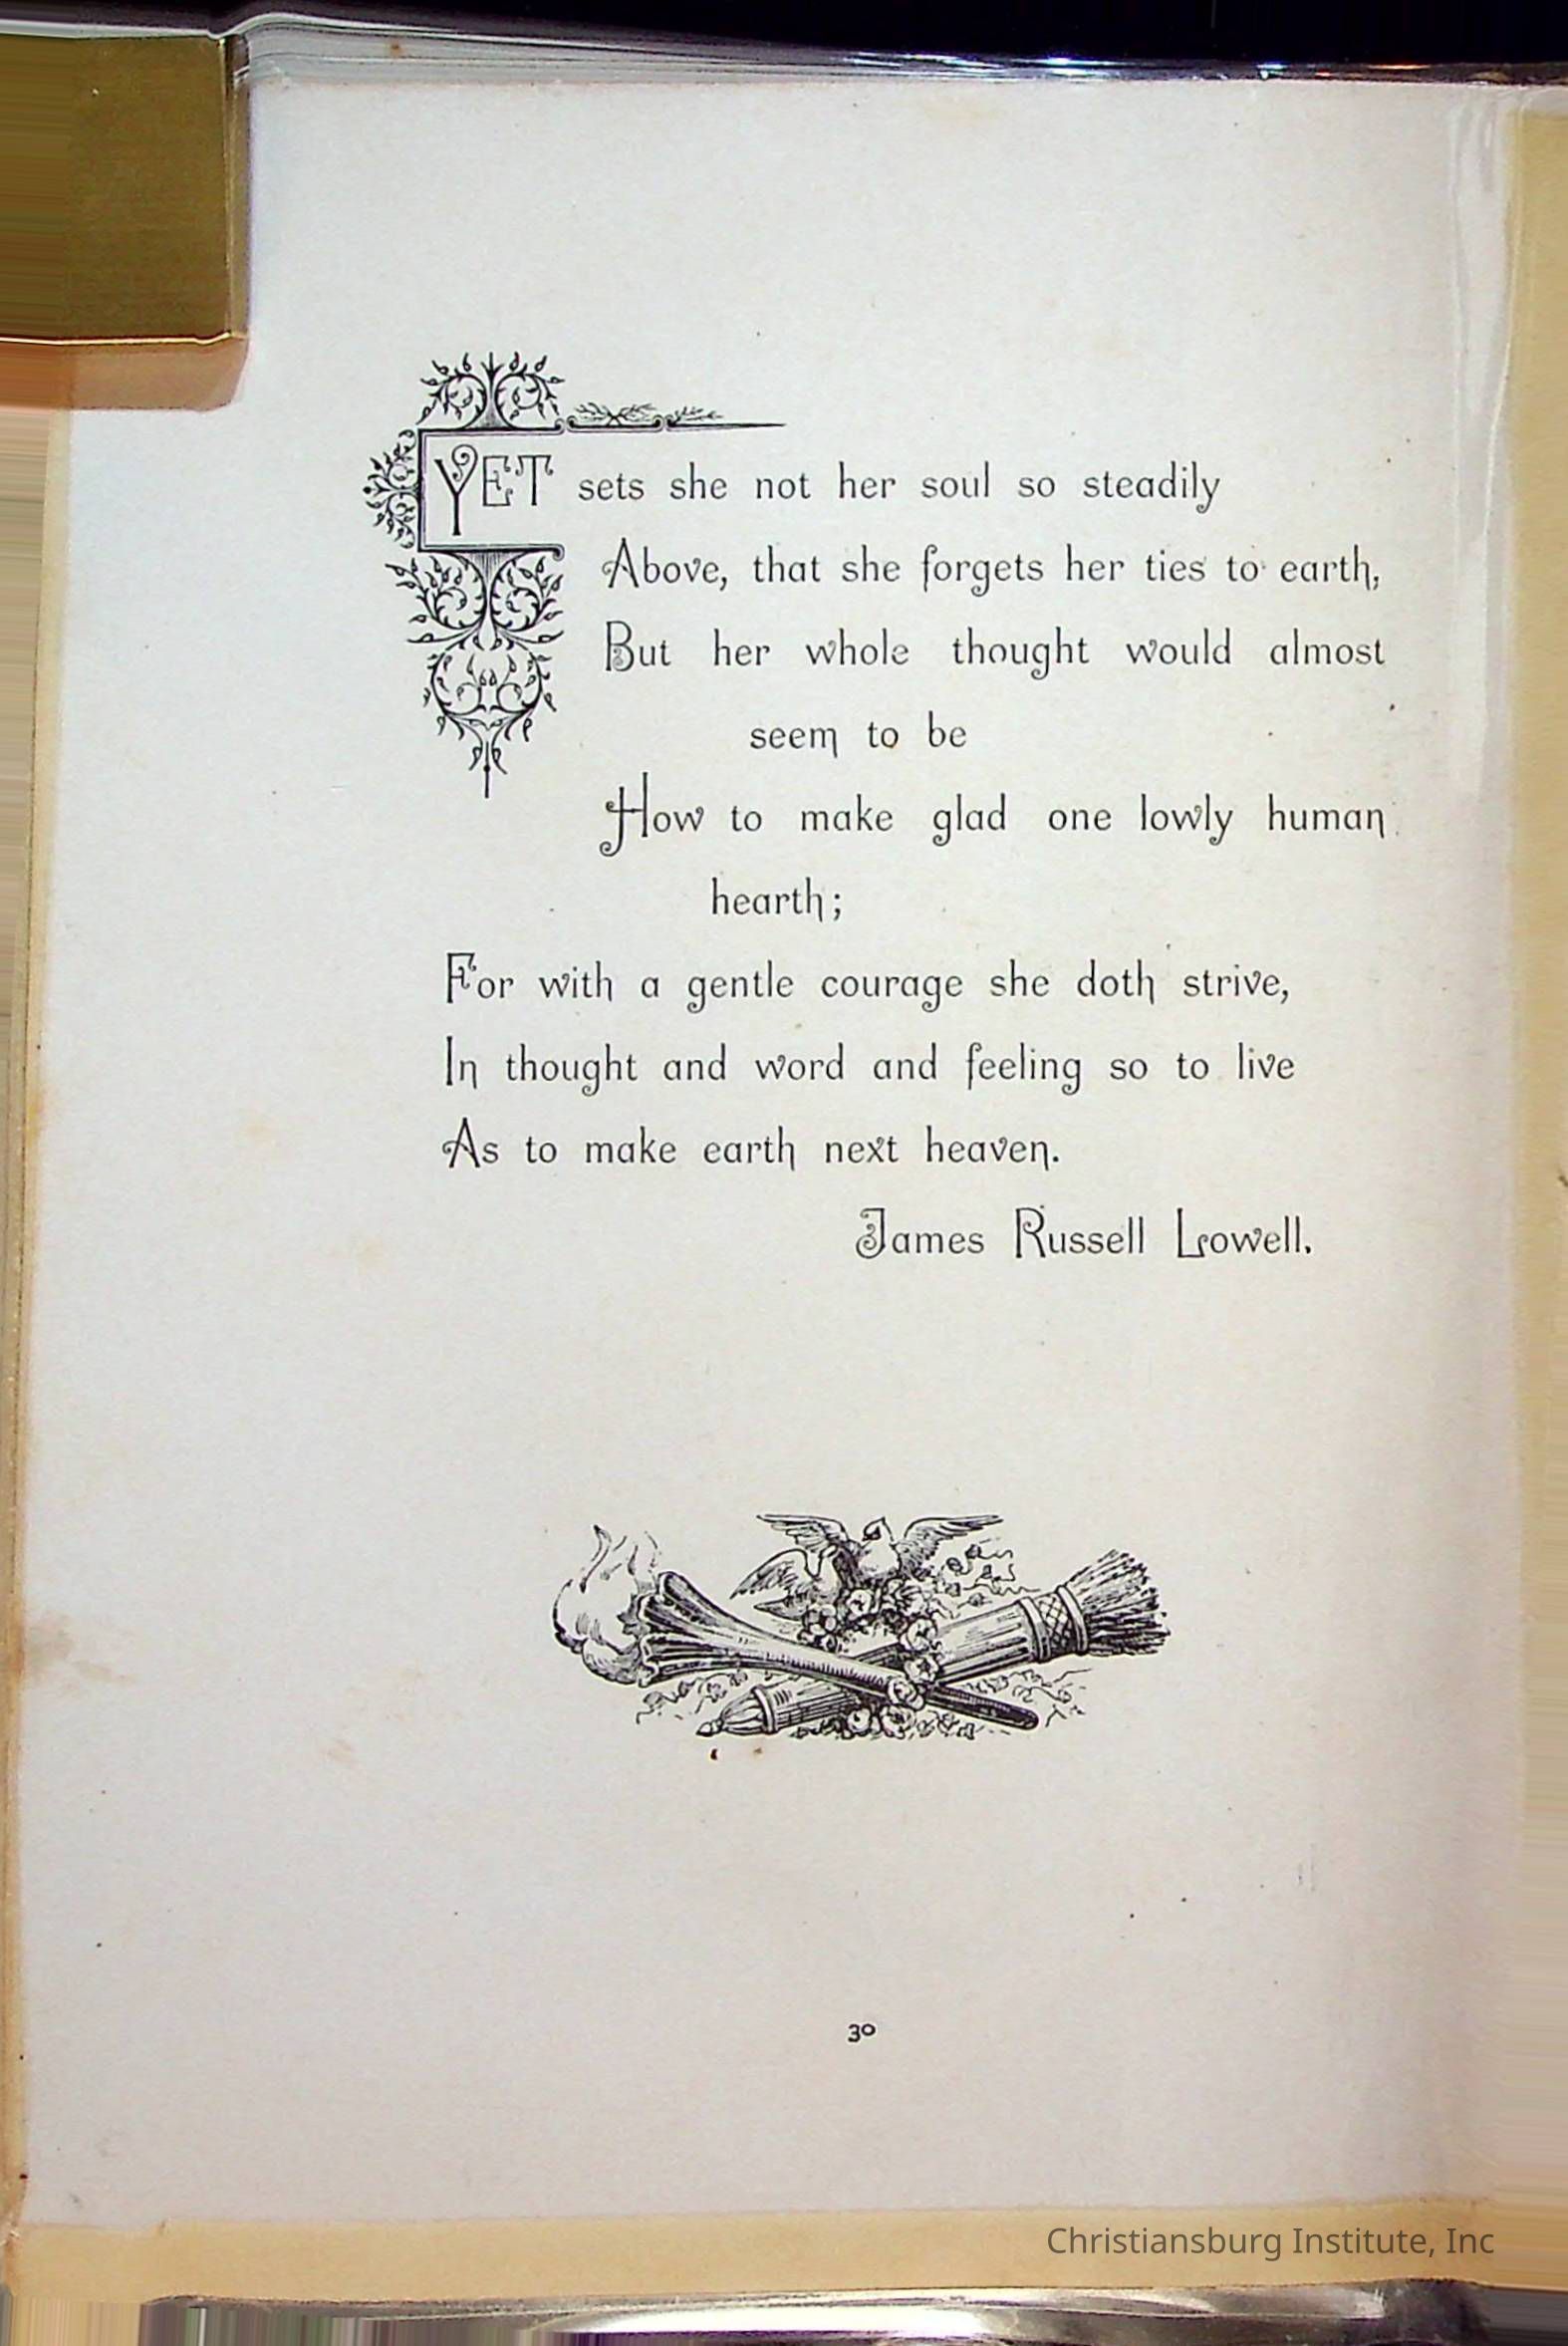 YET sets she not her soul so steadily
Above, that she forgets her ties to earth,
But her whole thought would almost
seem to be
How to make glad one lowly human
hearth;
For with a gentle courage she doth strive,
In thought and word and feeling so to live
As to make earth next heaven.
James Russell Lowell.
30
Christiansburg Institute, Inc